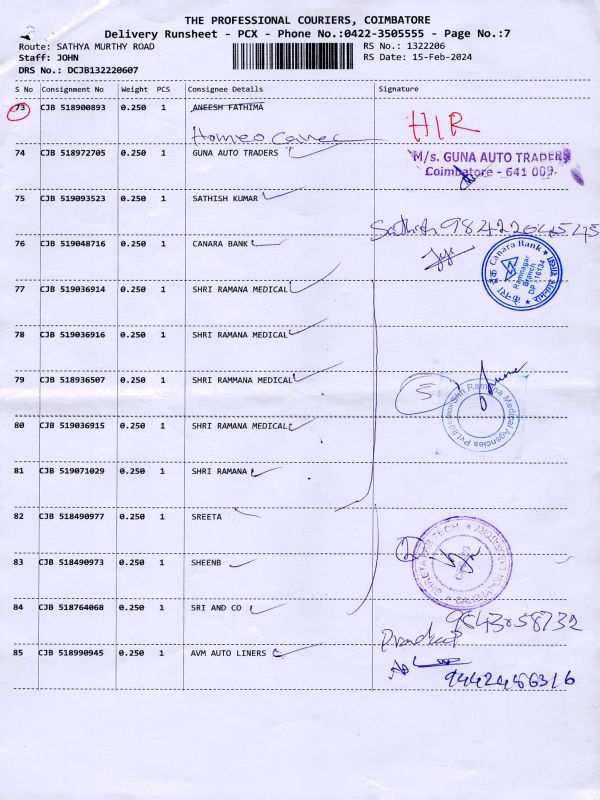 THE PROFESSIONAL COURIERS, COIMBATORE
Delivery Runsheet - PCX - Phone No.:0422-3505555 - Page No.:7
Route: SATHYA MURTHY ROAD
RS No.: 1322206
Staff: JOHN
RS Date: 15-Feb-2024
DRS No.: DCJB132220607
S No Consignment No Weight PCS Consignee Details Signature
73 CJB 518900893 0.250 1 ANEESH FATHIMA
Homeo
HIR
74 CJB 518972705 0.250 1 GUNA AUTO TRADERS
M/s. GUNA AUTO TRADERS
Coimbatore - 641 009.
75 CJB 519093523 0.250 1 SATHISH KUMAR
Sathish 9842204545
76 CJB 519048716 0.250 1 CANARA BANK
Canara Bank
Ramnagar
Branch
DP 16134
77 CJB 519036914 0.250 1 SHRI RAMANA MEDICAL
78 CJB 519036916 0.250 1 SHRI RAMANA MEDICAL
79 CJB 518936507 0.250 1 SHRI RAMMANA MEDICAL
5
Shri Ramana Medical Agencies Pvt.Ltd
80 CJB 519036915 0.250 1 SHRI RAMANA MEDICAL
81 CJB 519071029 0.250 1 SHRI RAMANA
82 CJB 518490977 0.250 1 SREETA
2
83 CJB 518490973 0.250 1 SHEENB
84 CJB 518764068 0.250 1 SRI AND CO
9843258732
Pradeep
85 CJB 518990945 0.250 1 AVM AUTO LINERS
9442486316